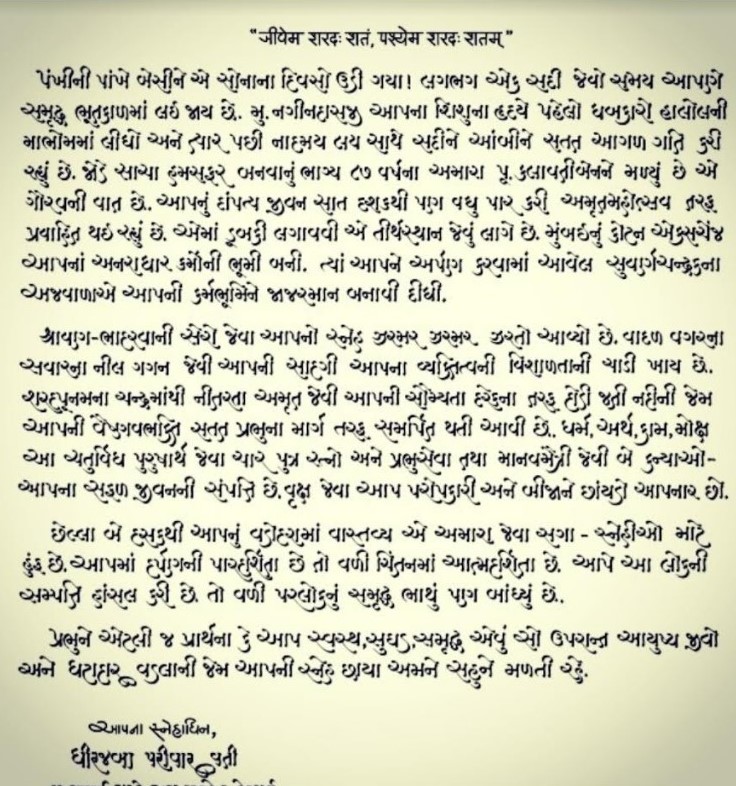 "जीवेम शरदः शतं, पश्येम शरदः शतम्"
પંખીની પાંખે બેસીને એ સોનાના દિવસો ઉડી ગયા! લગભગ એક સદી જેવો સમય આપણે
સમૃદ્ધ ભૂતકાળમાં લઇ જાય છે. મુ.નગીનદાસજી આપના શિશુના હૃદયે પહેલો ધબકારો હાલોલની
માભોમમાં લીધો અને ત્યાર પછી નાદમય લય સાથે સદીને આંબીને સતત આગળ ગતિ કરી
રહ્યું છે. જોડે સાચા હમસફર બનવાનું ભાગ્ય ૮૭ વર્ષના અમારા પૂ.કલાવતીબેનને મળ્યું છે એ
ગૌરવની વાત છે. આપનું દાંપત્ય જીવન સાત દશકથી પણ વધુ પાર કરી અમૃતમહોત્સવ તરફ
પ્રવાહિત થઇ રહ્યું છે. એમાં ડૂબકી લગાવવી એ તીર્થસ્થાન જેવું લાગે છે. મુંબઇનું કોટન એક્સચેંજ
આપનાં અનરાધાર કર્મોની ભૂમી બની. ત્યાં આપને અર્પણ કરવામાં આવેલ સુવર્ણચન્દ્રકના
અજવાળાએ આપની કર્મભૂમિને જાજરમાન બનાવી દીધી.
શ્રાવણ-ભાદરવાની સેરો જેવા આપનો સ્નેહ ઝરમર ઝરમર ઝરતો આવ્યો છે. વાદળ વગરના
સવારના નીલ ગગન જેવી આપની સાદગી આપના વ્યક્તિત્વની વિશાળતાની ચાડી ખાય છે.
શરદપૂનમના ચન્દ્રમાંથી નીતરતા અમૃત જેવી આપની સૌમ્યતા દરેકના તરફ દોડી જતી નદીની જેમ
આપની વૈષ્ણવભક્તિ સતત પ્રભુના માર્ગ તરફ સમર્પિત થતી આવી છે. ધર્મ,અર્થ,કામ,મોક્ષ
આ ચતુર્વિધ પુરુષાર્થ જેવા ચાર પુત્ર રત્નો અને પ્રભુસેવા તથા માનવમૈત્રી જેવી બે કન્યાઓ-
આપના સફળ જીવનની સંપત્તિ છે.વૃક્ષ જેવા આપ પરોપકારી અને બીજાને છાંયડો આપનાર છો.
છેલ્લા બે દસકથી આપનું વડોદરામાં વાસ્તવ્ય એ અમારા જેવા સગા - સ્નેહીઓ માટે
હુંફ છે.આપમાં દર્પણની પારદર્શિતા છે તો વળી ચિંતનમાં આત્મદર્શિતા છે. આપે આ લોકની
સમ્પત્તિ હાંસલ કરી છે. તો વળી પરલોકનું સમૃદ્ધ ભાથું પણ બાંધ્યું છે..
પ્રભુને એટલી જ પ્રાર્થના કે આપ સ્વસ્થ,સુઘડ,સમૃદ્ધ એવું સો ઉપરાન્ત આયુષ્ય જીવો
અને ઘટાદાર વડલાની જેમ આપની સ્નેહ છાયા અમને સહુને મળતી રહે.
આપના સ્નેહાધિન,
ધીરજબા પરીવાર વતી